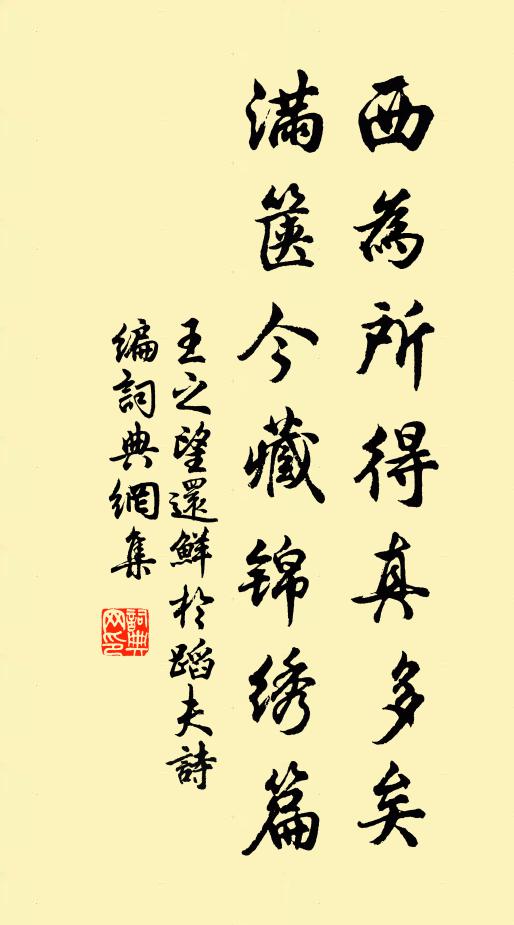 西為所得真多矣
滿篋今藏锦绣篇
王之望還鮮於蹈夫詩
编詞典網集
詞典
网印